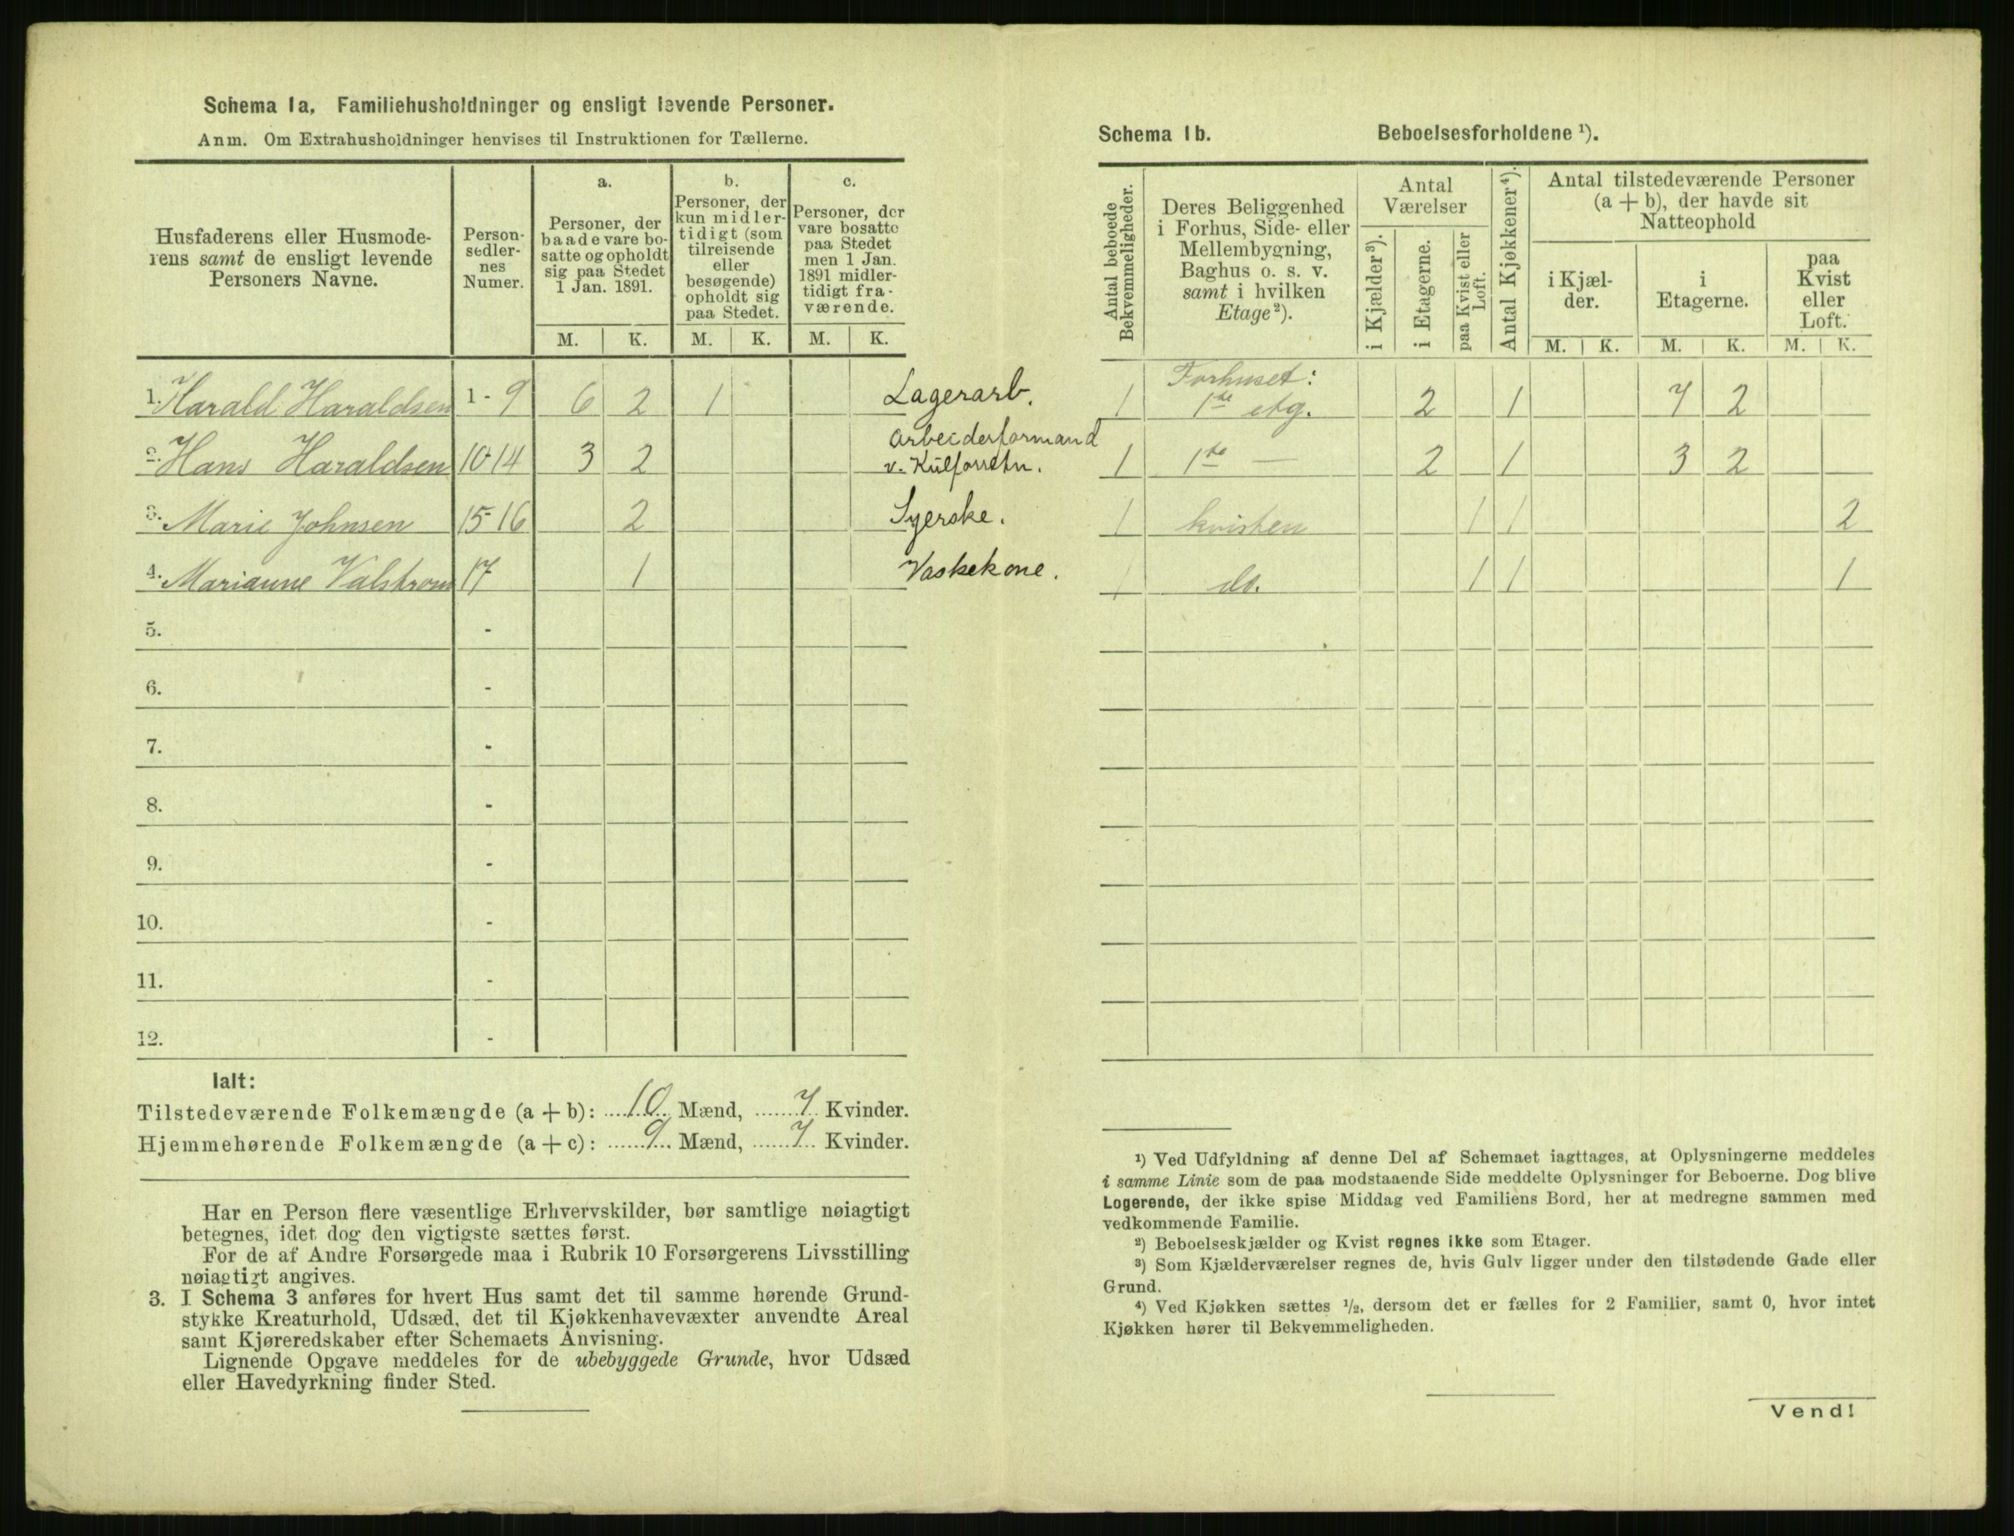 Schema 1a. Familiehusholdninger og ensligt levende Personer.
Anm. Om Extrahusholdninger henvises til Instruktionen for Tællerne.
Husfaderens eller Husmoderens samt de ensligt levende Personers Navne.
Personsedlernes Numer.
a.
Personer, der baade vare bosatte og opholdt sig paa Stedet 1 Jan. 1891.
b.
Personer, der kun midlertidigt (som tilreisende eller besøgende) opholdt sig paa Stedet.
c.
Personer, der vare bosatte paa Stedet men 1 Jan. 1891 midlertidigt fraværende.
M. K. M. K. M. K.
1. Harald Haraldsen 1 - 9 6 2 1 Lagerarb.
2. Hans Haraldsen 10-14 3 2 Arbeiderformand v. Kulforretn.
3. Marie Johnsen 15-16 2 Syerske.
4. Marianne Valstrom 17 1 Vaskekone.
5. -
6. -
7. -
8. -
9. -
10. -
11. -
12. -
Ialt:
Tilstedeværende Folkemængde (a + b): 10 Mænd, 7 Kvinder.
Hjemmehørende Folkemængde (a + c): 9 Mænd, 7 Kvinder.
Har en Person flere væsentlige Erhvervskilder, bør samtlige nøiagtigt
betegnes, idet dog den vigtigste sættes først.
For de af Andre Forsørgede maa i Rubrik 10 Forsørgerens Livsstilling
nøiagtigt angives.
3. I Schema 3 anføres for hvert Hus samt det til samme hørende Grund-
stykke Kreaturhold, Udsæd, det til Kjøkkenhavevæxter anvendte Areal
samt Kjøreredskaber efter Schemaets Anvisning.
Lignende Opgave meddeles for de ubebyggede Grunde, hvor Udsæd
eller Havedyrkning finder Sted.
Schema 1b. Beboelsesforholdene ¹).
Antal beboede Bekvemmeligheder.
Deres Beliggenhed i Forhus, Side- eller Mellembygning, Baghus o. s. v. samt i hvilken Etage²).
Antal Værelser
i Kjælder³).
i Etagerne.
paa Kvist eller Loft.
Antal Kjøkkener⁴).
Antal tilstedeværende Personer (a + b), der havde sit Natteophold
i Kjælder.
i Etagerne.
paa Kvist eller Loft.
M. K. M. K. M. K.
Forhuset:
1 1ste etg. 2 1 7 2
1 1ste — 2 1 3 2
1 kvisten 1 1 2
1 do. 1 1 1
¹) Ved Udfyldning af denne Del af Schemaet iagttages, at Oplysningerne meddeles
i samme Linie som de paa modstaaende Side meddelte Oplysninger for Beboerne. Dog blive
Logerende, der ikke spise Middag ved Familiens Bord, her at medregne sammen med
vedkommende Familie.
²) Beboelseskjælder og Kvist regnes ikke som Etager.
³) Som Kjælderværelser regnes de, hvis Gulv ligger under den tilstødende Gade eller
Grund.
⁴) Ved Kjøkken sættes ½, dersom det er fælles for 2 Familier, samt 0, hvor intet
Kjøkken hører til Bekvemmeligheden.
Vend!